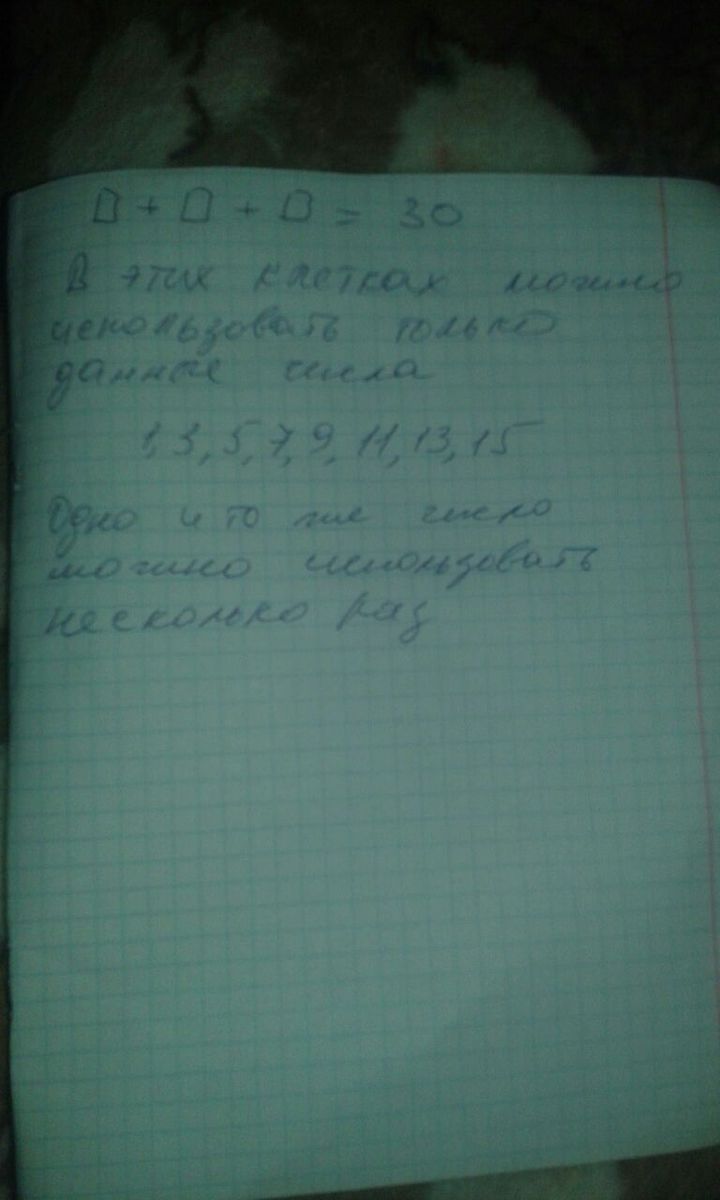 □ + □ + □ = 30
В этих клетках можно
использовать только
данные числа
1, 3, 5, 7, 9, 11, 13, 15
Одно и то же число
можно использовать
несколько раз